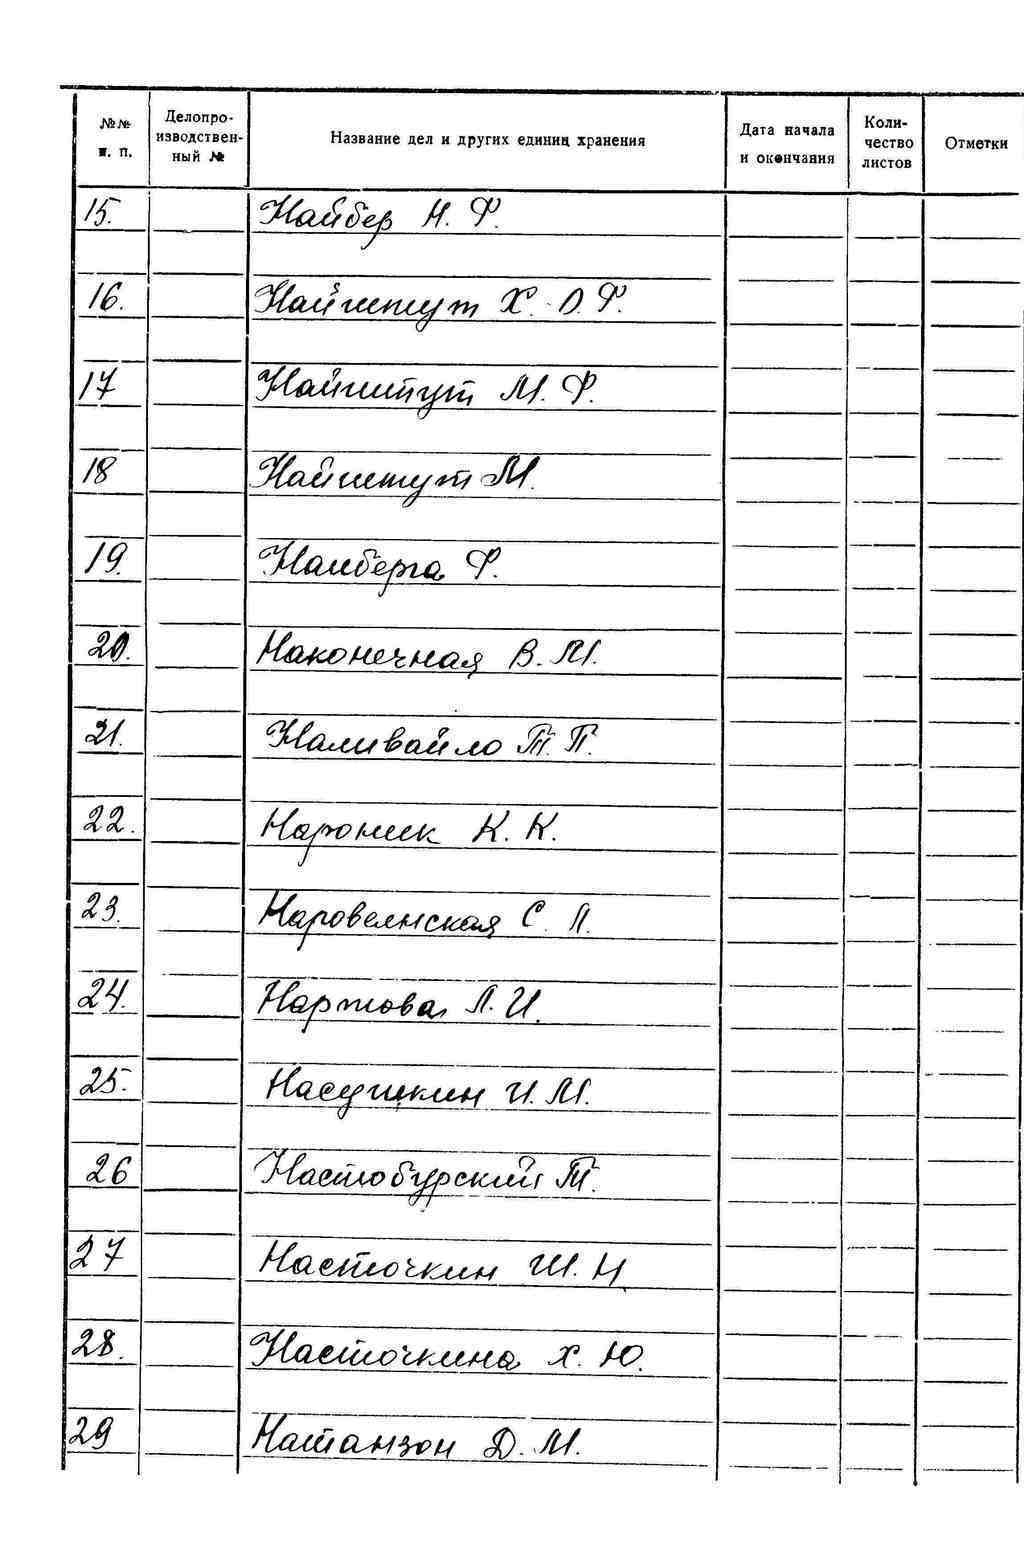 №№ п. п. Делопроизводственный № Название дел и других единиц хранения Дата начала и окончания Количество листов Отметки
15. Найбер Н. Ф.
16. Найштут Х. О. Ф.
17 Найштут М. Ф.
18 Найштут М.
19. Наиберга Ф.
20. Наконечная В. М.
21. Наливайло Т. П.
22. Нароник К. К.
23. Наровелнская С. Л.
24. Нартова Л. И.
25. Насушкин И. М.
26 Настобурский Т.
27 Насточкин Ш. Н
28. Насточкина Х. Ю.
29 Натанзон Д. М.